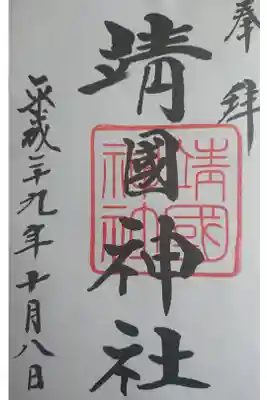 奉拜
靖國神社
靖國神社
平成二十九年十月八日